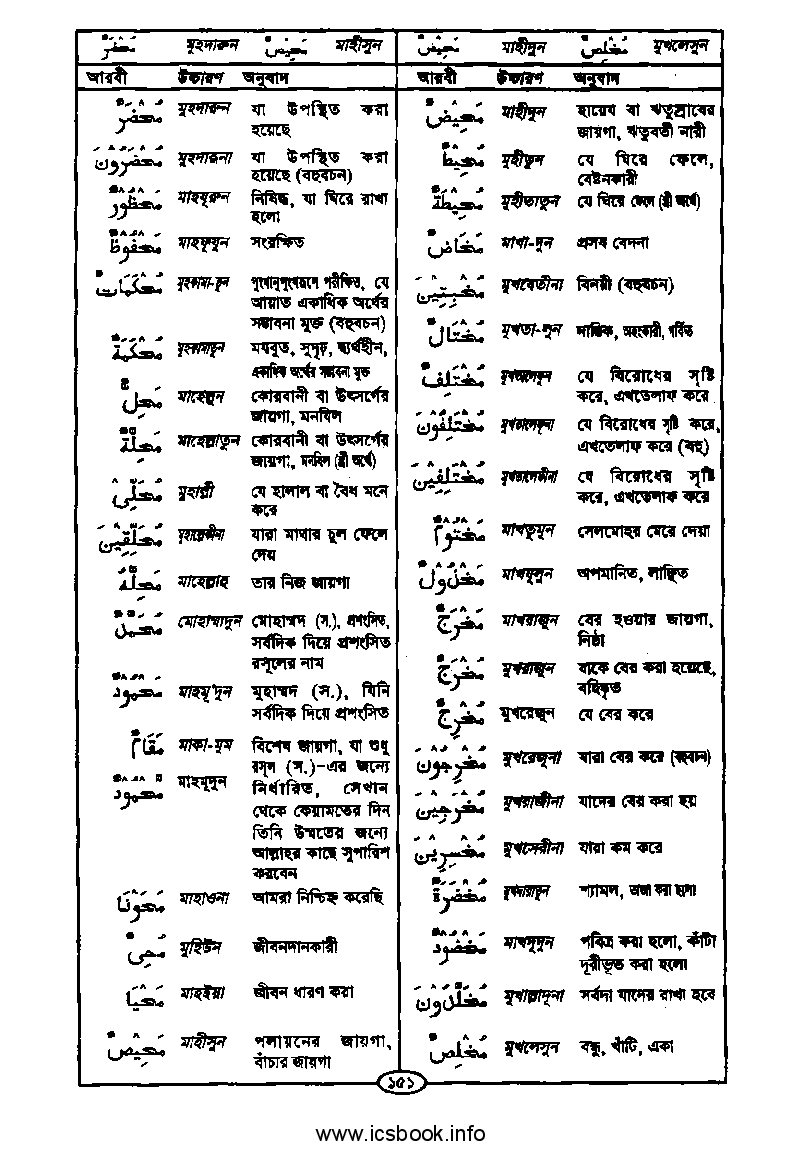 مُحْضَرٌ মুহদারুন مَحِيْصٌ মাহীসুন
আরবী উচ্চারণ অনুবাদ
مُحْضَرٌ মুহদারুন যা উপস্থিত করা
হয়েছে
مُحْضَرُوْنَ মুহদারুনা যা উপস্থিত করা
হয়েছে (বহুবচন)
مَحْظُوْرٌ মাহযূরুন নিষিদ্ধ, যা ঘিরে রাখা
হলো
مَحْفُوْظٌ মাহফূযুন সংরক্ষিত
مُحْكَمَاتٌ মুহকামা-তুন পুংখানুপুংখরূপে পরীক্ষিত, যে
আয়াত একাধিক অর্থের
সম্ভাবনা মুক্ত (বহুবচন)
مُحْكَمَةٌ মুহকামাতুন মযবুত, সুদৃঢ়, দ্ব্যর্থহীন,
একাধিক অর্থের সম্ভাবনা মুক্ত
مَحِلٌّ মাহেল্লুন কোরবানী বা উৎসর্গের
জায়গা, মনযিল
مَحِلَّةٌ মাহেল্লাতুন কোরবানী বা উৎসর্গের
জায়গা, মনযিল (স্ত্রী অর্থে)
مُحِلِّى মুহাল্লী যে হালাল বা বৈধ মনে
করে
مُحَلِّقِيْنَ মুহাল্লেকীনা যারা মাথার চুল ফেলে
দেয়
مَحِلَّهُ মাহেল্লাহু তার নিজ জায়গা
مُحَمَّدٌ মোহাম্মাদুন মোহাম্মদ (স.), প্রশংসিত,
সর্বদিক দিয়ে প্রশংসিত
রসূলের নাম
مَحْمُوْدٌ মাহমূ'দুন মুহাম্মদ (স.), যিনি
সর্বদিক দিয়ে প্রশংসিত
مَقَامٌ মাকা-মুম বিশেষ জায়গা, যা শুধু
রসূল (স.)-এর জন্যে
مَحْمُوْدٌ মাহমূদুন নির্ধারিত, সেখান
থেকে কেয়ামতের দিন
তিনি উম্মতের জন্যে
আল্লাহর কাছে সুপারিশ
করবেন
مَحَوْنَا মাহাওনা আমরা নিশ্চিহ্ন করেছি
مُحْىِ মুহিউন জীবনদানকারী
مَحْيَا মাহইয়া জীবন ধারণ করা
مَحِيْصٌ মাহীসুন পলায়নের জায়গা,
বাঁচার জায়গা
مَحِيْضٌ মাহীদুন مُخْلِصٌ মুখলেসুন
আরবী উচ্চারণ অনুবাদ
مَحِيْضٌ মাহীদুন হায়েয বা ঋতুস্রাবের
জায়গা, ঋতুবতী নারী
مُحِيْطٌ মুহীতুন যে ঘিরে ফেলে,
বেষ্টনকারী
مُحِيْطَةٌ মুহীতাতুন যে ঘিরে ফেলে (স্ত্রী অর্থে)
مَخَاضٌ মাখা-দুন প্রসব বেদনা
مُخْبِتِيْنَ মুখবেতীনা বিনয়ী (বহুবচন)
مُخْتَالٌ মুখতা-লুন দাম্ভিক, অহংকারী, গর্বিত
مُخْتَلِفٌ মুখতালেফুন যে বিরোধের সৃষ্টি
করে, এখতেলাফ করে
مُخْتَلِفُوْنَ মুখতালেফূনা যে বিরোধের সৃষ্টি করে,
এখতেলাফ করে (বহু)
مُخْتَلِفِيْنَ মুখতালেফীনা যে বিরোধের সৃষ্টি
করে, এখতেলাফ করে
مَخْتُوْمٌ মাখতূমুন সেলমোহর মেরে দেয়া
مَخْذُوْلٌ মাখযূলুন অপমানিত, লাঞ্ছিত
مَخْرَجٌ মাখরাজুন বের হওয়ার জায়গা,
নিষ্ঠা
مُخْرَجٌ মুখরাজুন যাকে বের করা হয়েছে,
বহিষ্কৃত
مُخْرِجٌ মুখরেজুন যে বের করে
مُخْرِجُوْنَ মুখরেজূনা যারা বের করে (বহুবচন)
مُخْرَجِيْنَ মুখরাজীনা যাদের বের করা হয়
مُخْسِرِيْنَ মুখসেরীনা যারা কম করে
مُخْضَرَّةٌ মুখদাররাতুন শ্যামল, তাজা করা হলো
مَخْضُوْدٌ মাখদূদুন পবিত্র করা হলো, কাঁটা
দূরীভূত করা হলো
مُخَلَّدُوْنَ মুখাল্লাদূনা সর্বদা যাদের রাখা হবে
مُخْلِصٌ মুখলেসুন বন্ধু, খাঁটি, একা
১৫১
www.icsbook.info